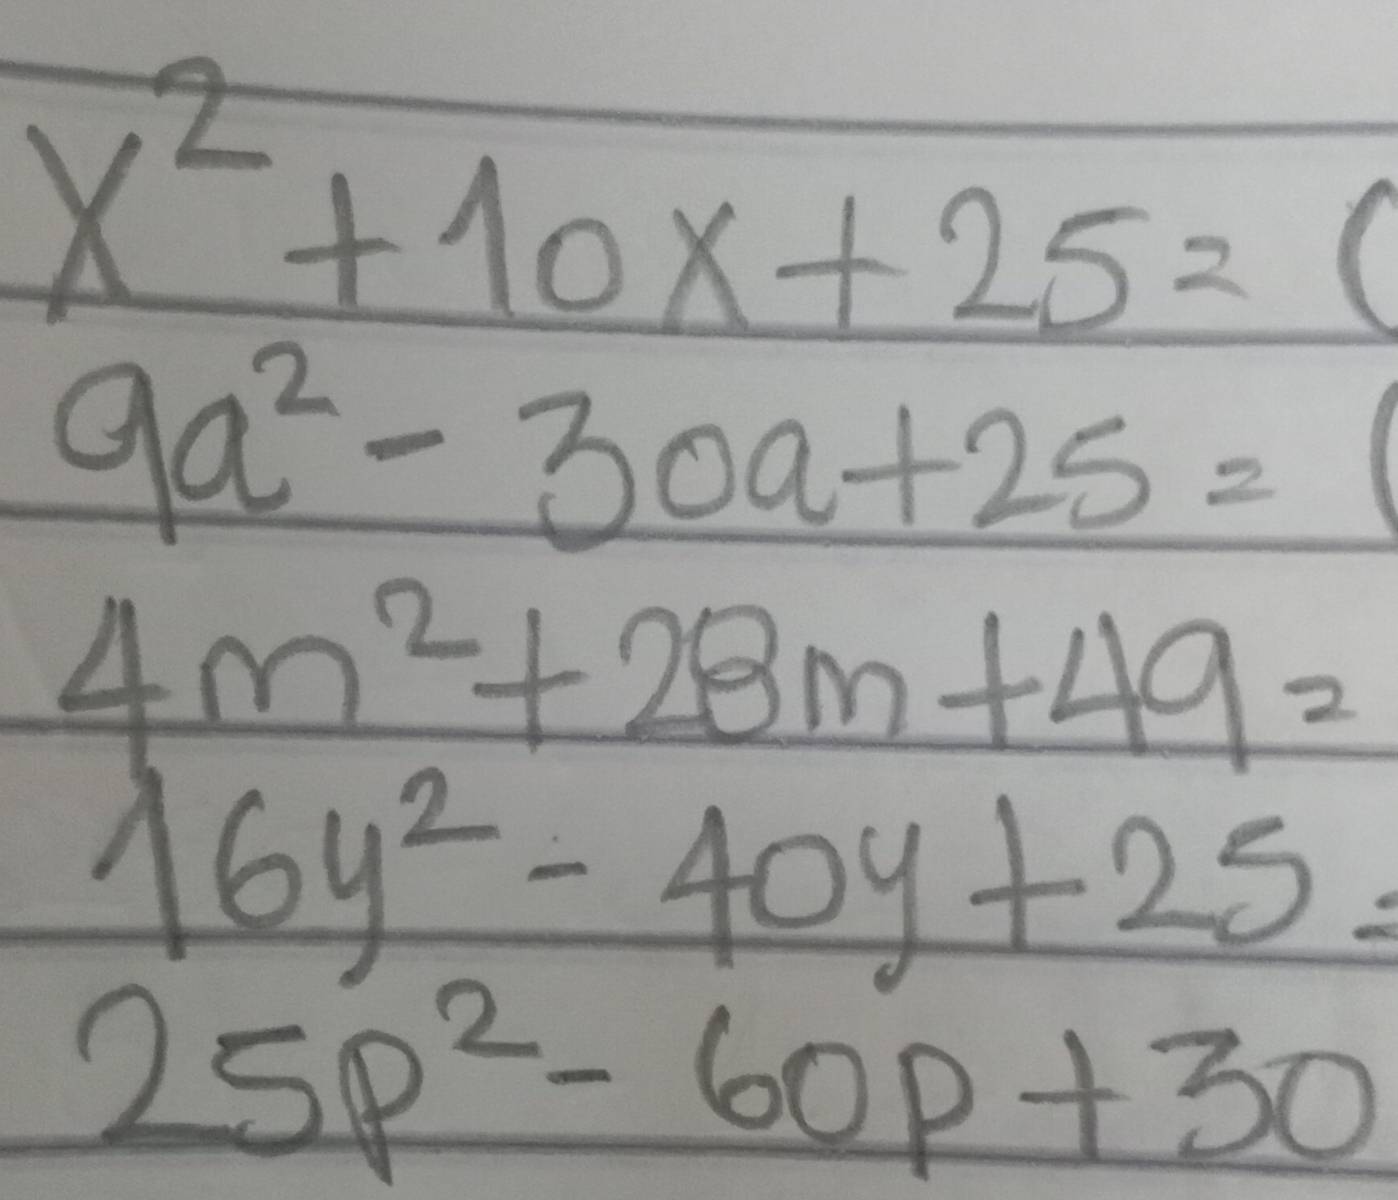 x² + 10x + 25 = (
9a² - 30a + 25 = (
4m² + 28m + 49 =
16y² - 40y + 25 =
25p² - 60p + 30